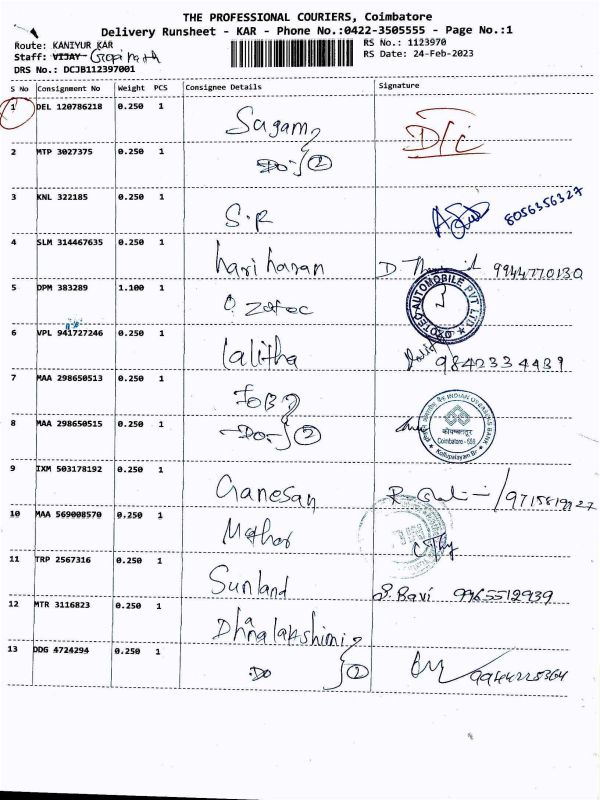 THE PROFESSIONAL COURIERS, Coimbatore
Delivery Runsheet - KAR - Phone No.:0422-3505555 - Page No.:1
Route: KANIYUR KAR
RS No.: 1123970
Staff: VIJAY Gopinath
RS Date: 24-Feb-2023
DRS No.: DCJB112397001
S No Consignment No Weight PCS Consignee Details Signature
1 DEL 120786218 0.250 1 Sagam D/c
2 MTP 3027375 0.250 1 Do 2
3 KNL 322185 0.250 1 S.R 8056356327
4 SLM 314467635 0.250 1 hari haran D. 9944770130
5 DPM 383289 1.100 1 O Zotec AUTOMOBILE PVT LTD
6 VPL 941727246 0.250 1 lalitha 9842334439
7 MAA 298650513 0.250 1 JOB
8 MAA 298650515 0.250 1 Do 2 INDIAN OVERSEAS BANK कोयम्बत्तूर Coimbatore Kollupalayam Br
9 IXM 503178192 0.250 1 Ganesan
10 MAA 569008570 0.250 1
11 TRP 2567316 0.250 1 Sunland S. Ravi 9965512939
12 MTR 3116823 0.250 1 Dhanalakshimi
13 DDG 4724294 0.250 1 Do 2 9944225364